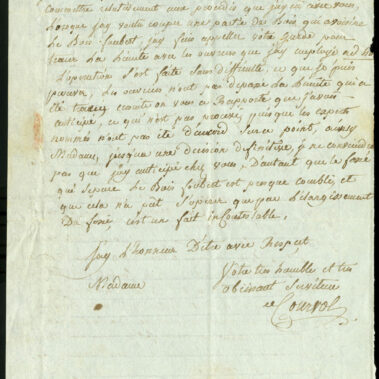 relativement aux procédés que j'ay eu avec vous,
lorsque j'ay voulu couper une partie des Bois qui avoisine
le Bois foubert j'ay fait appeller votre garde pour
la limite avec les ouvriers que j'ay employés
l'operation s'est faite sans difficulté, ce que je puis
prouver, Les ouvriers n'ont pas depassé la limite qui a
été ensuite on vous a Rapporté que j'avois
anticipé, ce qui n'est pas puisque les experts
nommés n'ont pas été d'accord sur ce point, aussy
Madame, jusqu'a une decision definitive, je ne conviendrai
pas que j'ay anticipé chez vous, D'autant que le fossé
qui separe le Bois foubert est presque comblé, et
que cela n'a pût s'operer que par l'élargissement
Du fossé, c'est un fait incontestable.
J'ay l'honneur D'être avec Respect
Madame
Votre très humble et très
obeissant Serviteur
Courvol